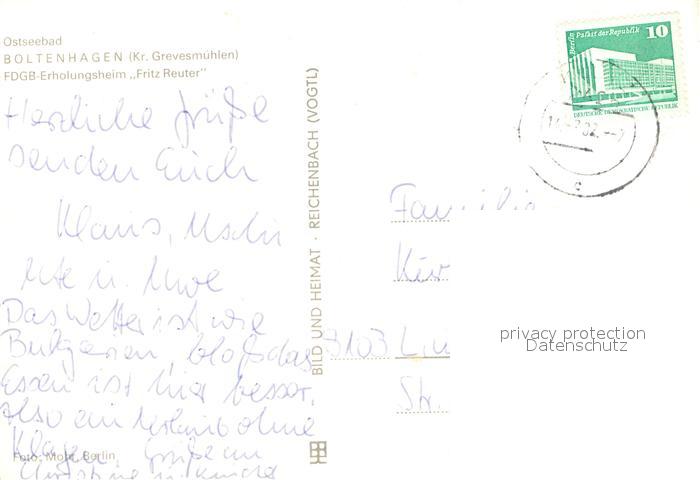 Ostseebad
BOLTENHAGEN (Kr. Grevesmühlen)
FDGB-Erholungsheim „Fritz Reuter"
Herzliche Grüße
senden Euch
Klaus, Uschi
Ute u. Uwe
Das Wetter ist wie
Bulgarien, bloß das
Essen ist hier besser.
Also ein Urlaub ohne
Klagen. Grüße an
Christine u. Kinder
Foto: Mohr, Berlin
BILD UND HEIMAT · REICHENBACH (VOGTL)
Berlin Palast der Republik
10
DEUTSCHE DEMOKRATISCHE REPUBLIK
82
c
Familie
9103
Str.
privacy protection
Datenschutz